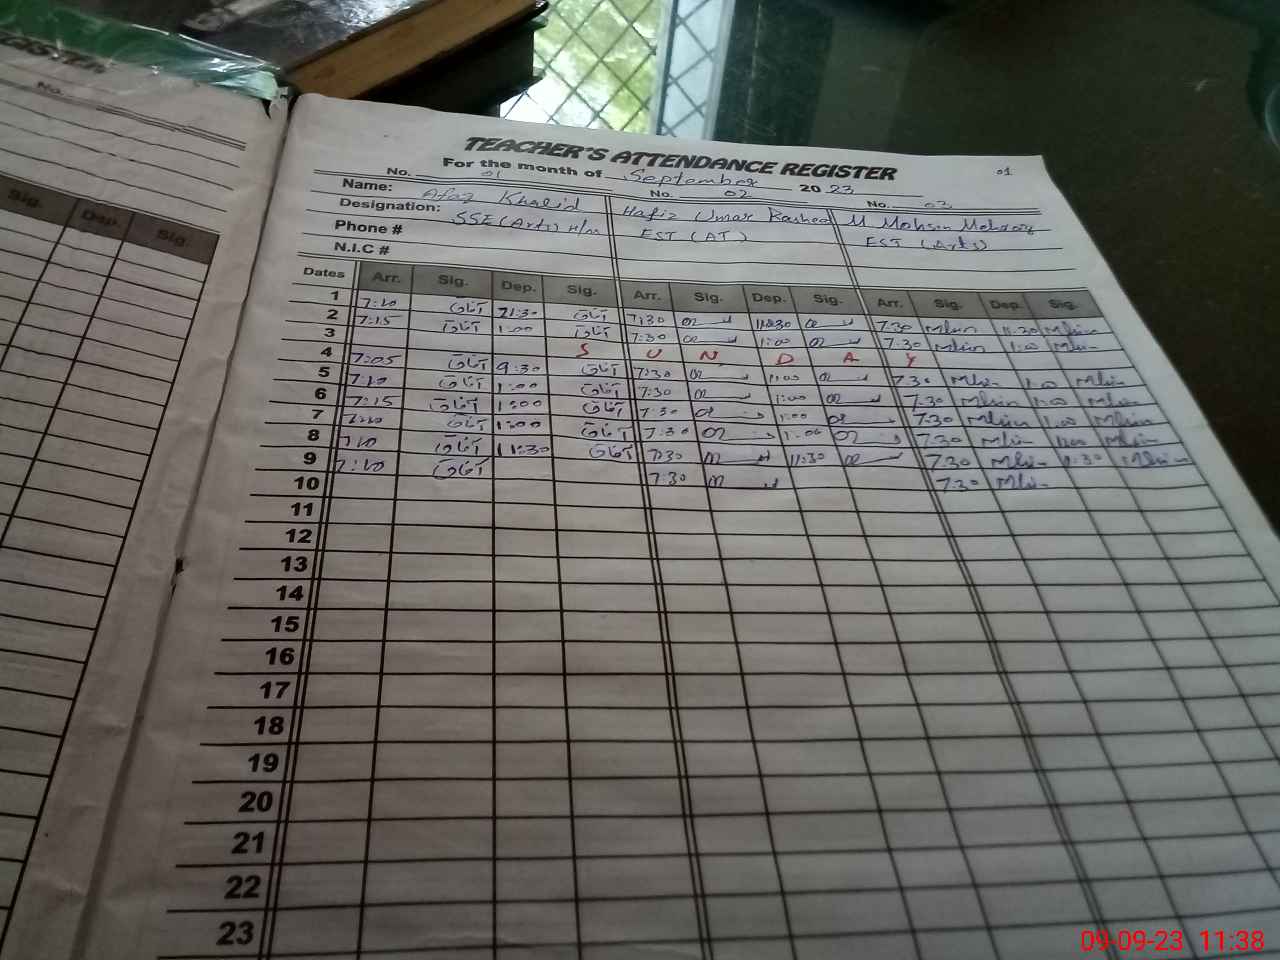 No.
Sig. Dep. Sig.
TEACHER'S ATTENDANCE REGISTER
01
For the month of September 2023
No. 01 No. 02 No. 03
Name: Afaq Khalid Hafiz Umar Rasheed M Mohsin
Designation: SSE (Arts) H/m EST (AT) EST (Arts)
Phone #
N.I.C #
Dates Arr. Sig. Dep. Sig. Arr. Sig. Dep. Sig. Arr. Sig. Dep. Sig.
1 7:10 آفاق آفاق 7:30 7:30 Mhsin 11:30 Mhsin
2 7:15 آفاق 1:00 آفاق 7:30 1:00 7:30 Mhsin 1:00 Mhsin
3 S U N D A Y
4 7:05 آفاق 9:30 آفاق 7:30 1:00 7:30 Mhsin 1:00 Mhsin
5 7:10 آفاق 1:00 آفاق 7:30 1:00 7:30 Mhsin 1:00 Mhsin
6 7:15 آفاق 1:00 آفاق 7:30 1:00 7:30 Mhsin 1:00 Mhsin
7 7:10 آفاق 1:00 آفاق 7:30 1:00 7:30 Mhsin 1:00 Mhsin
8 7:10 آفاق 11:30 آفاق 7:30 11:30 7:30 Mhsin 11:30 Mhsin
9 7:10 آفاق 7:30 7:30 Mhsin
10
11
12
13
14
15
16
17
18
19
20
21
22
23
09-09-23 11:38